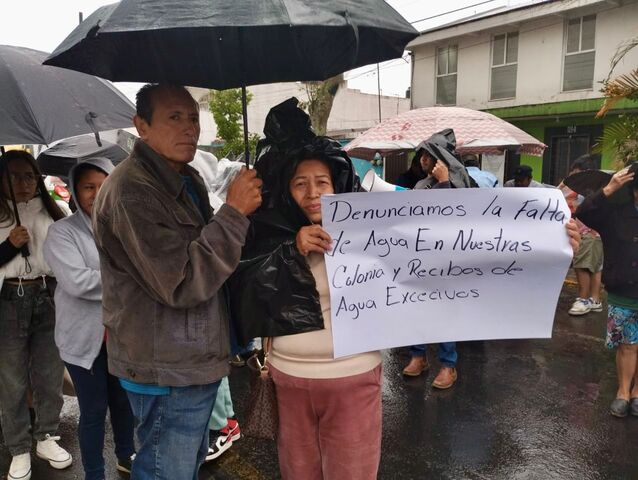 Denunciamos la Falta
de Agua En Nuestras
Colonia y Recibos de
Agua Excecivos